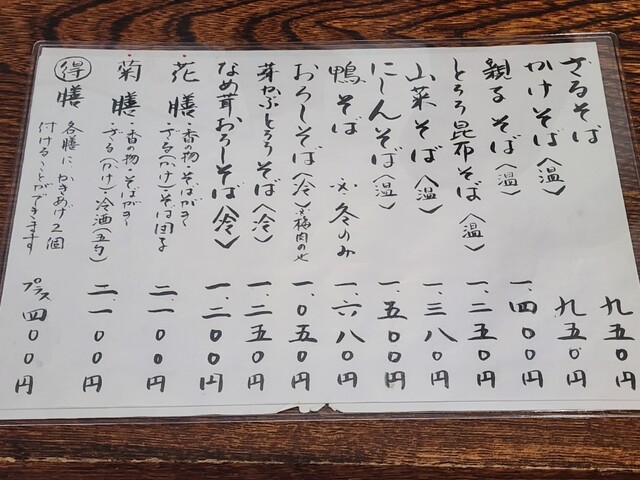 ざるそば 九五〇円
かけそば〈温〉 九五〇円
親子そば〈温〉 一、四〇〇円
とろろ昆布そば〈温〉 一、二五〇円
山菜そば〈温〉 一、三八〇円
にしんそば〈温〉 一、五〇〇円
鴨そば ※冬のみ 一、六八〇円
おろしそば〈冷〉※梅肉のせ 一、〇五〇円
芽かぶとろろそば〈冷〉 一、二五〇円
なめ茸おろしそば〈冷〉 一、二〇〇円
・花膳 ・香の物・そばがき
・ざる(かけ)そば団子 二、一〇〇円
・菊膳 ・香の物・そばがき
・ざる(かけ)冷酒(五勺) 二、一〇〇円
得膳 各膳にかきあげ2個
付けることができます プラス四〇〇円